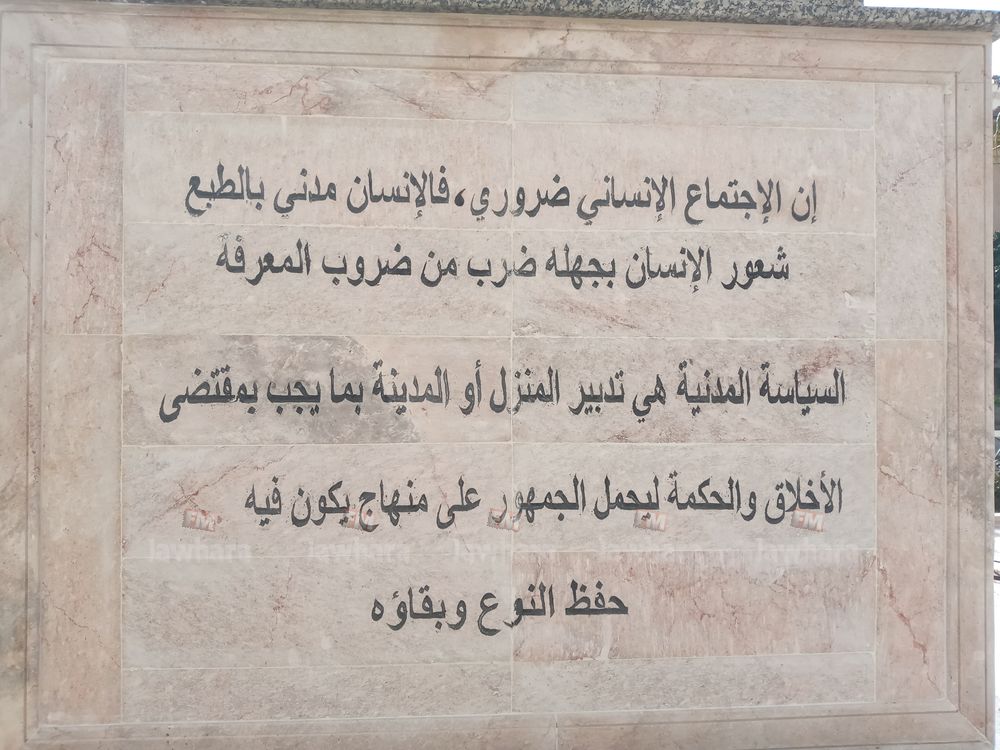 إن الإجتماع الإنساني ضروري، فالإنسان مدني بالطبع
شعور الإنسان بجهله ضرب من ضروب المعرفة
السياسة المدنية هي تدبير المنزل أو المدينة بما يجب بمقتضى
الأخلاق والحكمة ليحمل الجمهور على منهاج يكون فيه
FM FM FM FM FM
lawhara lawhara lawhara lawhara lawhara
حفظ النوع وبقاؤه